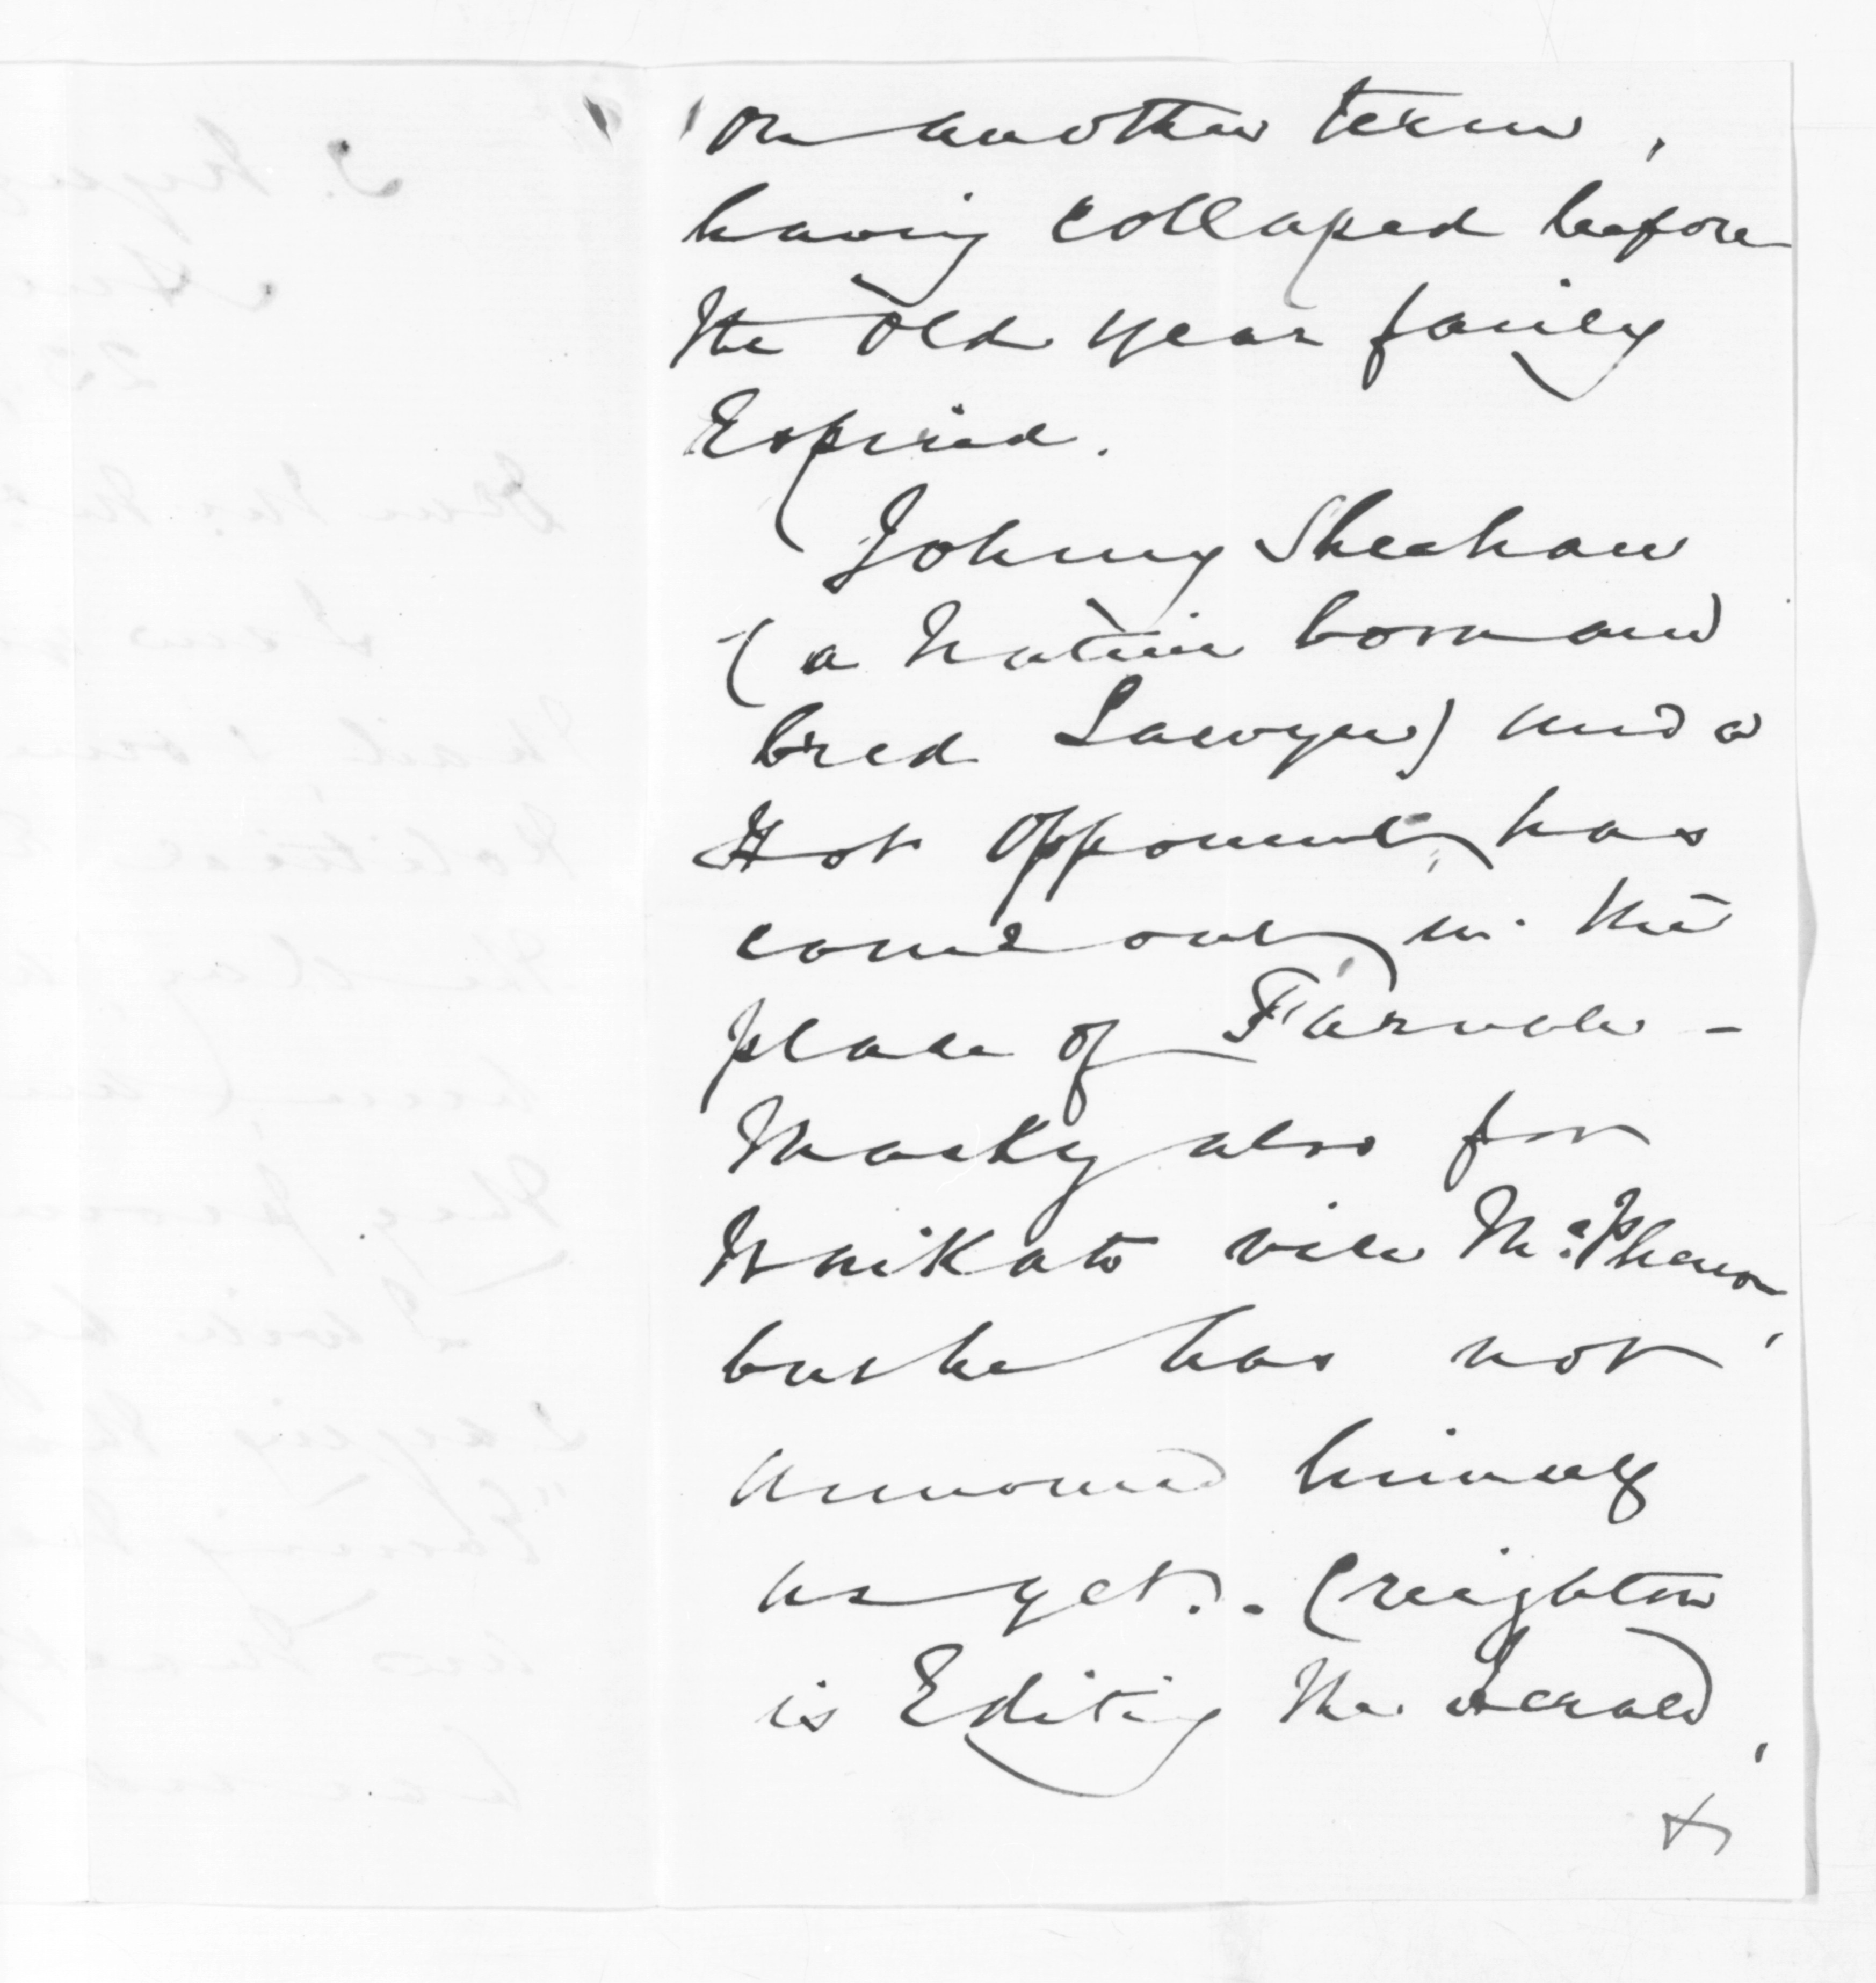 on another term,
having collapsed before
the old year fairly
Expired.
Johnny Sheehan
(a Native born and
bred Lawyer) and a
Hot opponent, has
come out in the
place of Farnall -
Macky also for
Waikato vice McPherson,
but he has not
announced himself
as yet. . Creighton
is Editing the Herald,